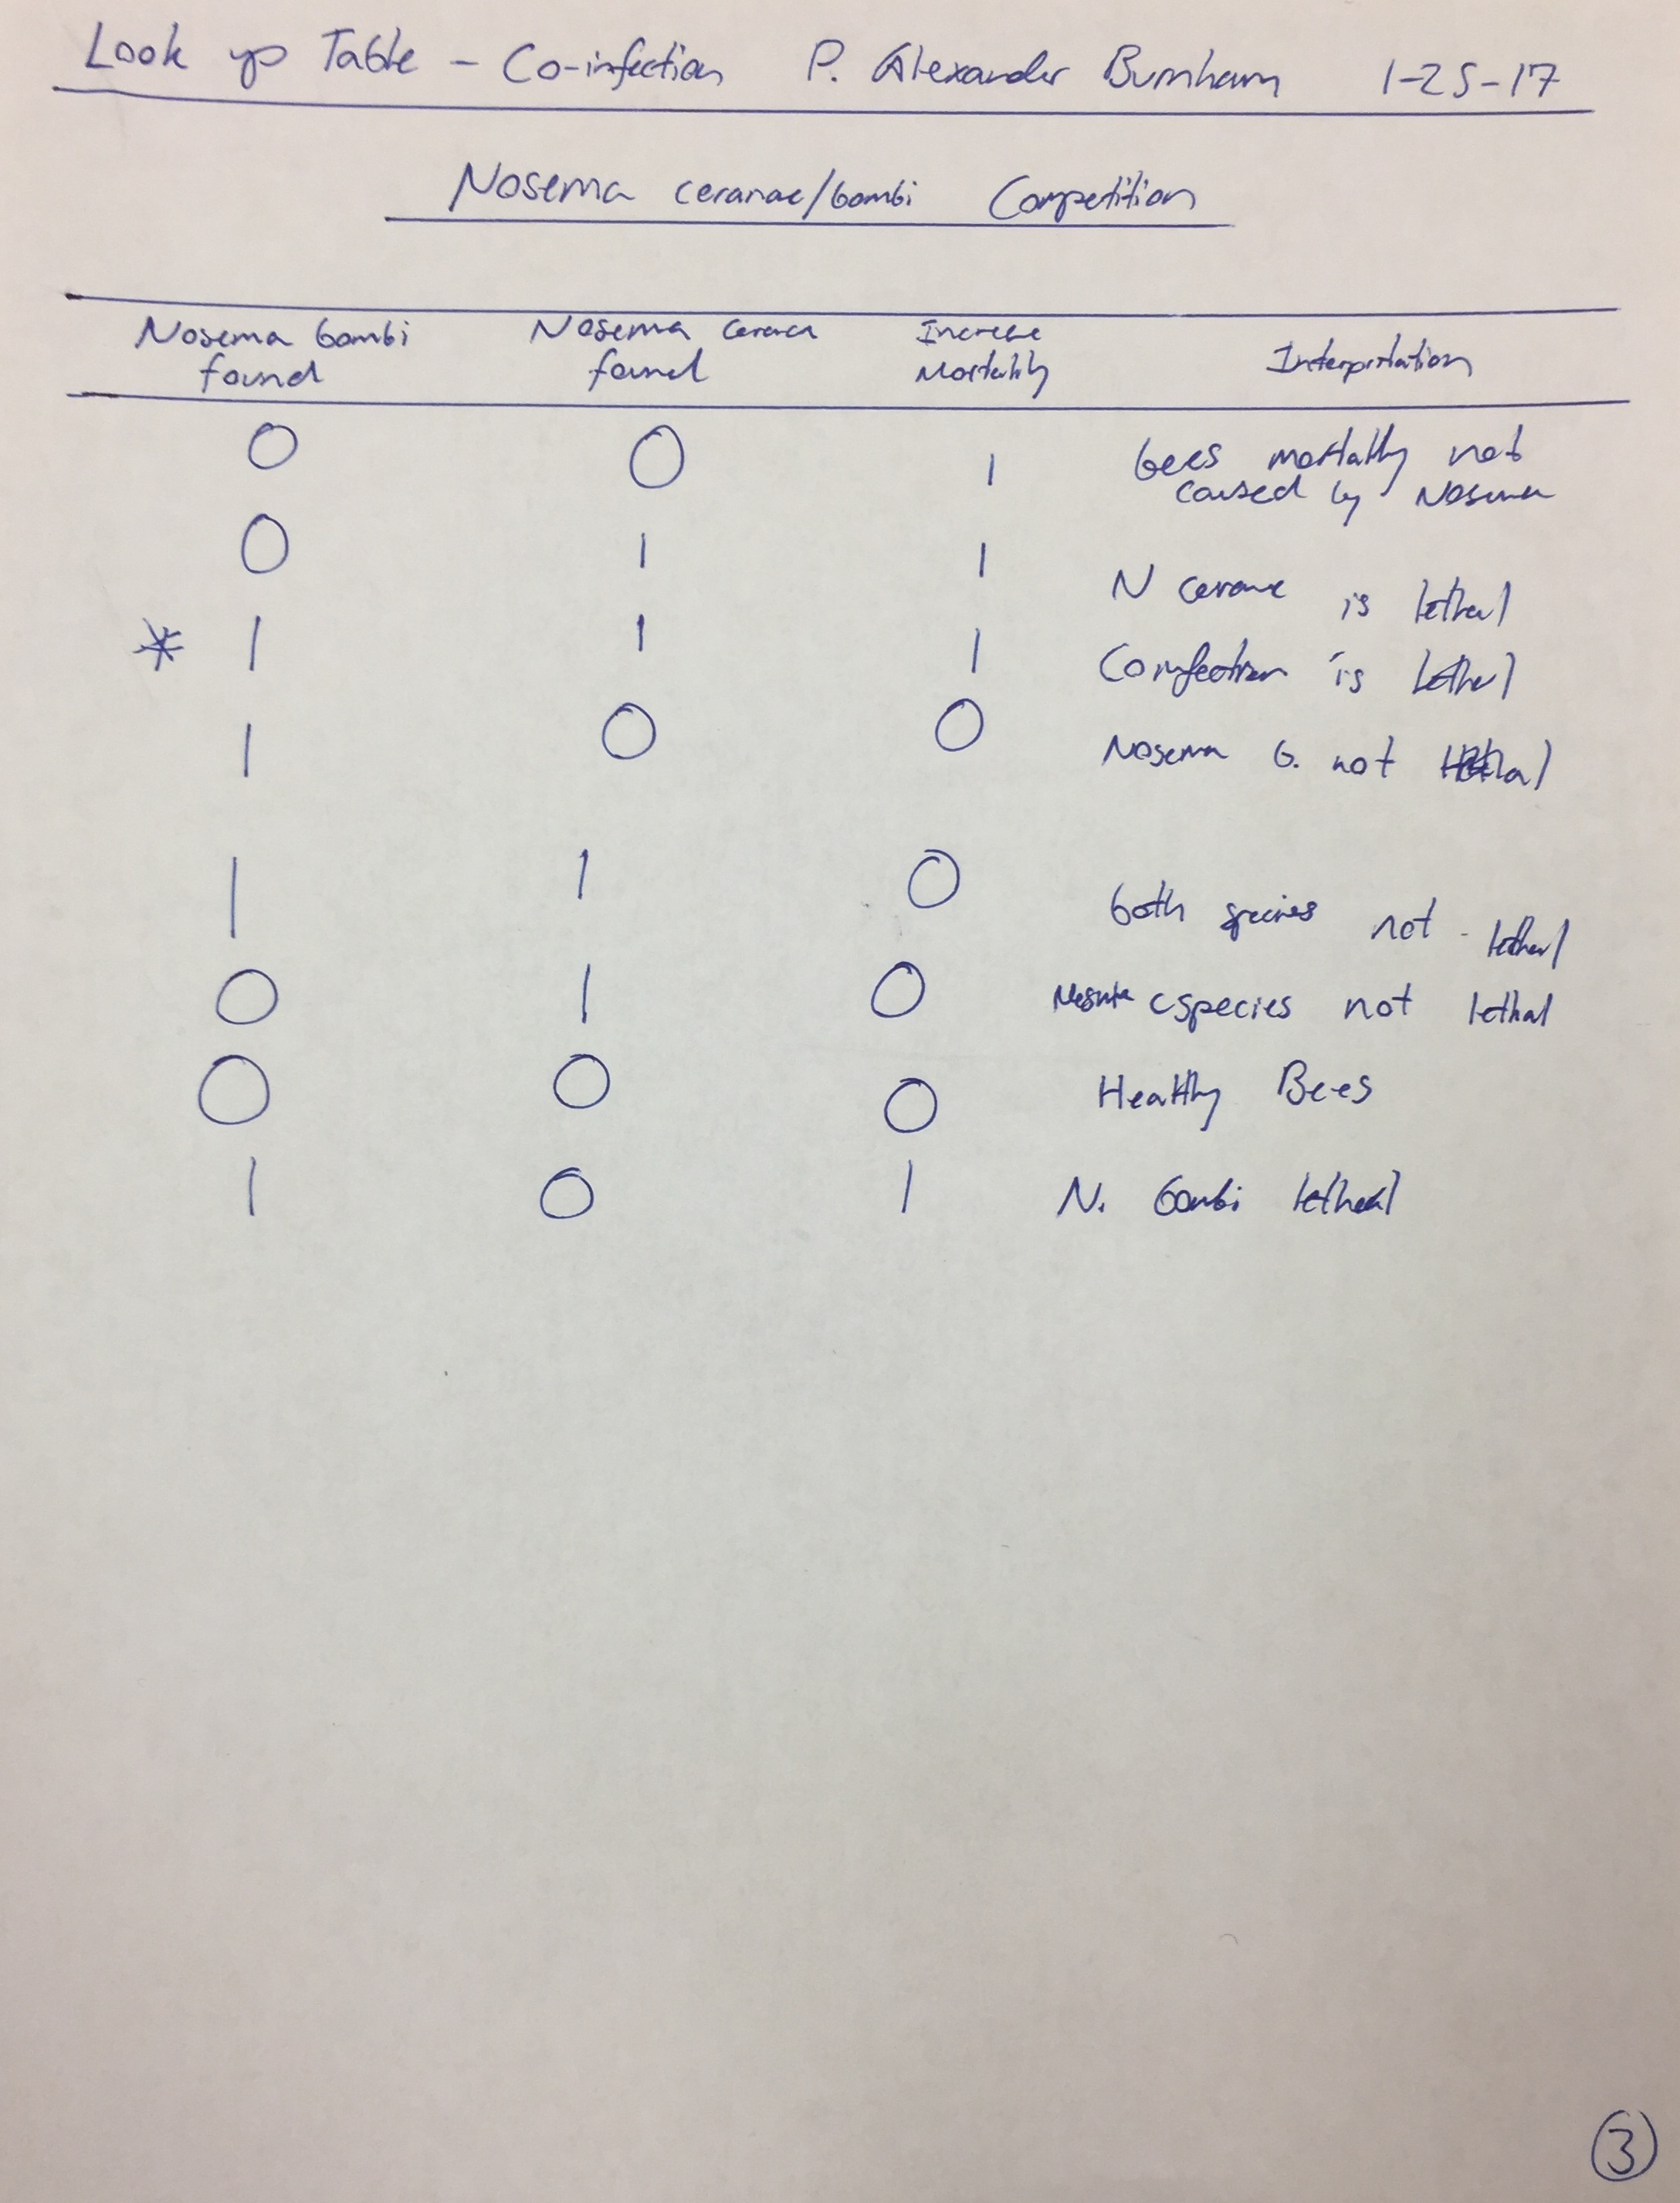 Look up Table - Co-infection P. Alexander Burnham 1-25-17
Nosema ceranae/bombi Competition
Nosema bombi found Nosema found Increase Mortality Interpretation
0 0 1 bees mortality not caused by Nosema
0 1 1 N is lethal
* 1 1 1 Coinfection is lethal
1 0 0 Nosema b. not lethal
1 1 0 both species not lethal
0 1 0 Nosema c species not lethal
0 0 0 Healthy Bees
1 0 1 N. bombi lethal
3